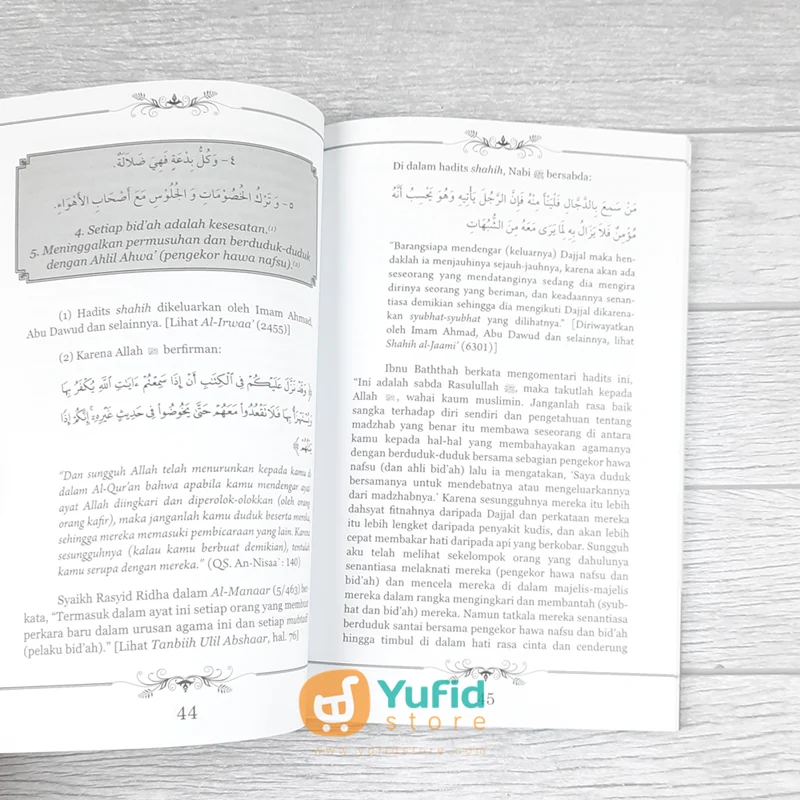 ٤- وَكُلُّ بِدْعَةٍ فَهِيَ ضَلَالَةٌ.
٥- وَ تَرْكُ الْخُصُوْمَاتِ وَ الْجُلُوْسِ مَعَ أَصْحَابِ الْأَهْوَاءِ.
4. Setiap bid'ah adalah kesesatan.(1)
5. Meninggalkan permusuhan dan berduduk-duduk
dengan Ahlil Ahwa' (pengekor hawa nafsu).(2)
(1) Hadits shahih dikeluarkan oleh Imam Ahmad,
Abu Dawud dan selainnya. [Lihat Al-Irwaa' (2455)]
(2) Karena Allah ﷻ berfirman:
﴿ وَقَدْ نَزَّلَ عَلَيْكُمْ فِى الْكِتَٰبِ أَنْ إِذَا سَمِعْتُمْ ءَايَٰتِ اللَّهِ يُكْفَرُ بِهَا
وَيُسْتَهْزَأُ بِهَا فَلَا تَقْعُدُوا۟ مَعَهُمْ حَتَّىٰ يَخُوضُوا۟ فِى حَدِيثٍ غَيْرِهِۦٓ ۚ إِنَّكُمْ إِذًا
مِّثْلُهُمْ ﴾
"Dan sungguh Allah telah menurunkan kepada kamu di
dalam Al-Qur'an bahwa apabila kamu mendengar ayat-
ayat Allah diingkari dan diperolok-olokkan (oleh orang-
orang kafir), maka janganlah kamu duduk beserta mereka,
sehingga mereka memasuki pembicaraan yang lain. Karena
sesungguhnya (kalau kamu berbuat demikian), tentulah
kamu serupa dengan mereka." (QS. An-Nisaa': 140)
Syaikh Rasyid Ridha dalam Al-Manaar (5/463) ber-
kata, "Termasuk dalam ayat ini setiap orang yang membuat
perkara baru dalam urusan agama ini dan setiap mubtadi'
(pelaku bid'ah)." [Lihat Tanbiih Ulil Abshaar, hal. 76]
44
Di dalam hadits shahih, Nabi ﷺ bersabda:
مَنْ سَمِعَ بِالدَّجَّالِ فَلْيَنْأَ مِنْهُ فَإِنَّ الرَّجُلَ يَأْتِيهِ وَهُوَ يَحْسِبُ أَنَّهُ
مُؤْمِنٌ فَلَا يَزَالُ بِهِ لِمَا يَرَى مَعَهُ مِنَ الشُّبُهَاتِ
"Barangsiapa mendengar (keluarnya) Dajjal maka hen-
daklah ia menjauhinya sejauh-jauhnya, karena akan ada
seseorang yang mendatanginya sedang dia mengira
dirinya seorang yang beriman, dan keadaannya senan-
tiasa demikian sehingga dia mengikuti Dajjal dikarena-
kan syubhat-syubhat yang dilihatnya." [Diriwayatkan
oleh Imam Ahmad, Abu Dawud dan selainnya, lihat
Shahih al-Jaami' (6301)]
Ibnu Baththah berkata mengomentari hadits ini,
"Ini adalah sabda Rasulullah ﷺ, maka takutlah kepada
Allah ﷻ, wahai kaum muslimin. Janganlah rasa baik
sangka terhadap diri sendiri dan pengetahuan tentang
madzhab yang benar itu membawa seseorang di antara
kamu kepada hal-hal yang membahayakan agamanya
dengan berduduk-duduk bersama sebagian pengekor hawa
nafsu (dan ahli bid'ah) lalu ia mengatakan, 'Saya duduk
bersamanya untuk mendebatnya atau mengeluarkannya
dari madzhabnya.' Karena sesungguhnya mereka itu lebih
dahsyat fitnahnya daripada Dajjal dan perkataan mereka
itu lebih lengket daripada penyakit kudis, dan akan lebih
cepat membakar hati daripada api yang berkobar. Sungguh
aku telah melihat sekelompok orang yang dahulunya
senantiasa melaknati mereka (pengekor hawa nafsu dan
bid'ah) dan mencela mereka di dalam majelis-majelis
mereka dalam rangka mengingkari dan membantah (syub-
hat dan bid'ah) mereka. Namun tatkala mereka senantiasa
berduduk santai bersama pengekor hawa nafsu dan bid'ah
hingga timbul di dalam hati rasa cinta dan cenderung
45
Yufid
store
www.yufidstore.com